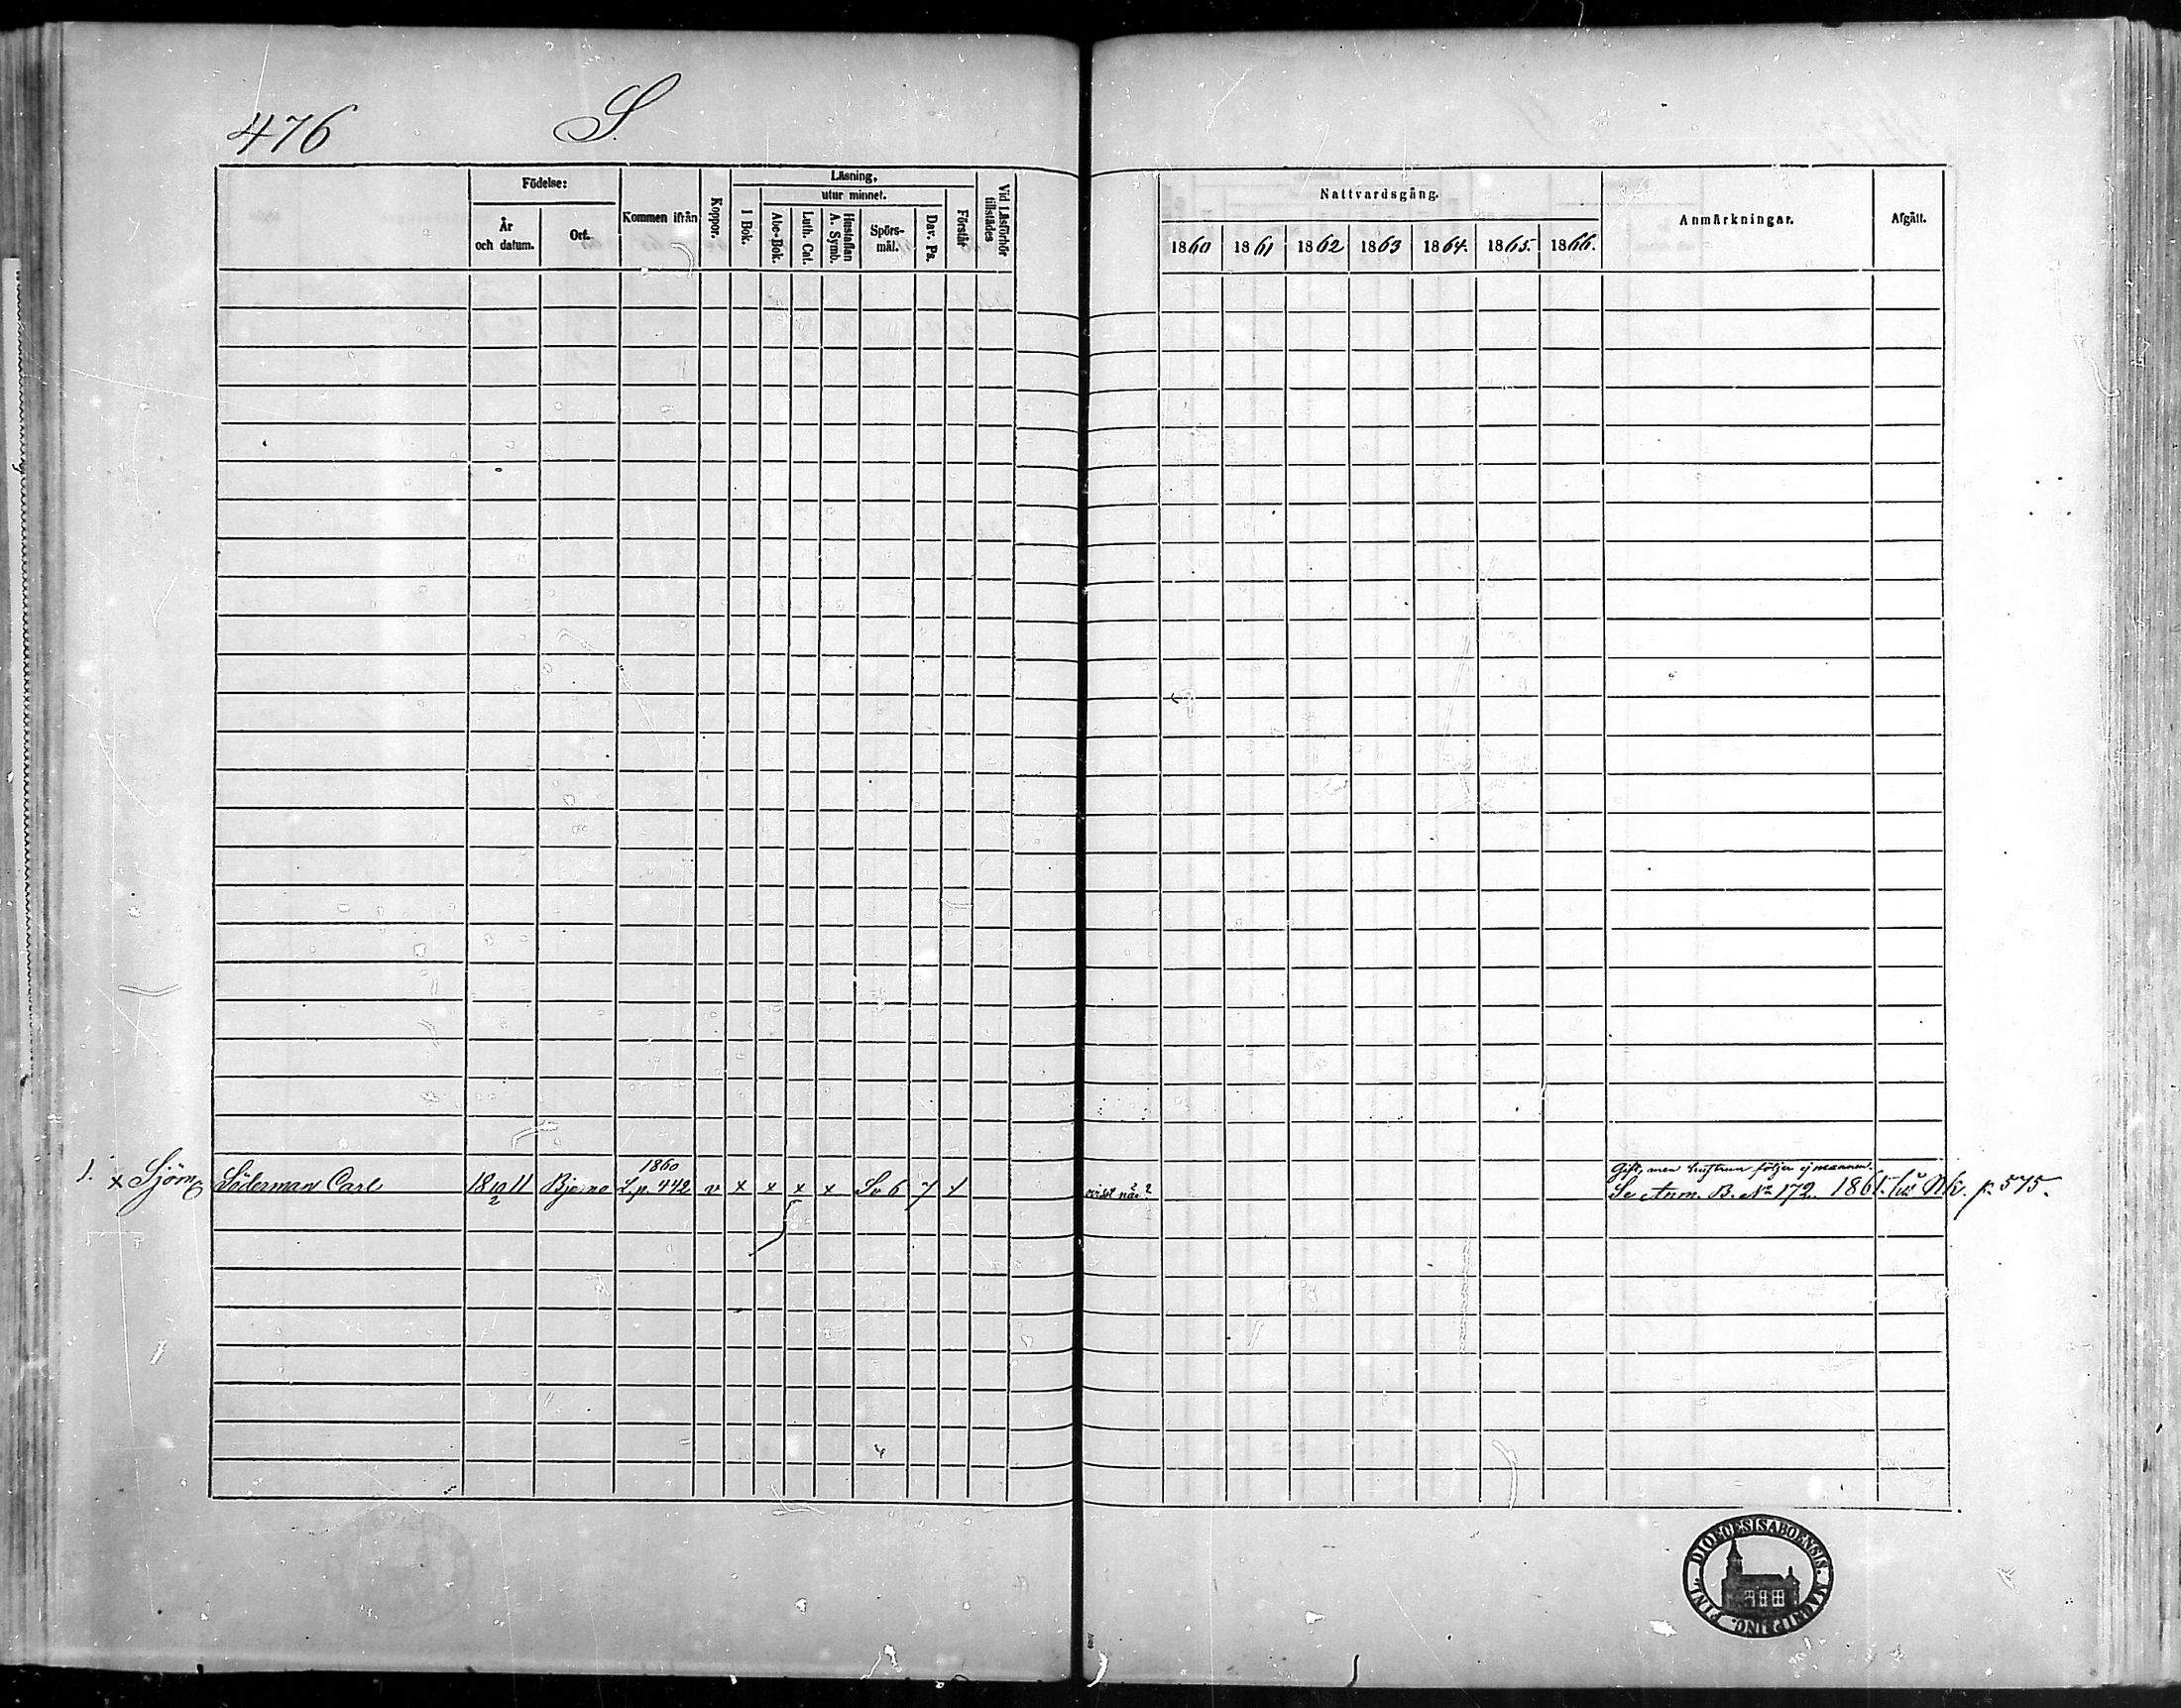 476 S.
Födelse: Kommen ifrån Koppor. Läsning, Vid Läsförhör tillstädes Nattvardsgång. Anmärkningar. Afgått.
År och datum. Ort. I Bok. utur minnet. Förstår
Abc-Bok. Luth. Cat. Hustaflan A. Symb. Spörs-mål. Dav. Ps.
1860 1861 1862 1863 1864. 1865. 1866.
1860
Gift, men hustrun följer ej mannen.
1. x Sjöm. Söderman Carl 18 10/2 11 Bjerno L.p. 442 v x x x x Sv 6 Se Anm. B. No 172. 1861. p. 575.
DIOECESIS ABOENSIS. MAGNI PRINC. FINL.